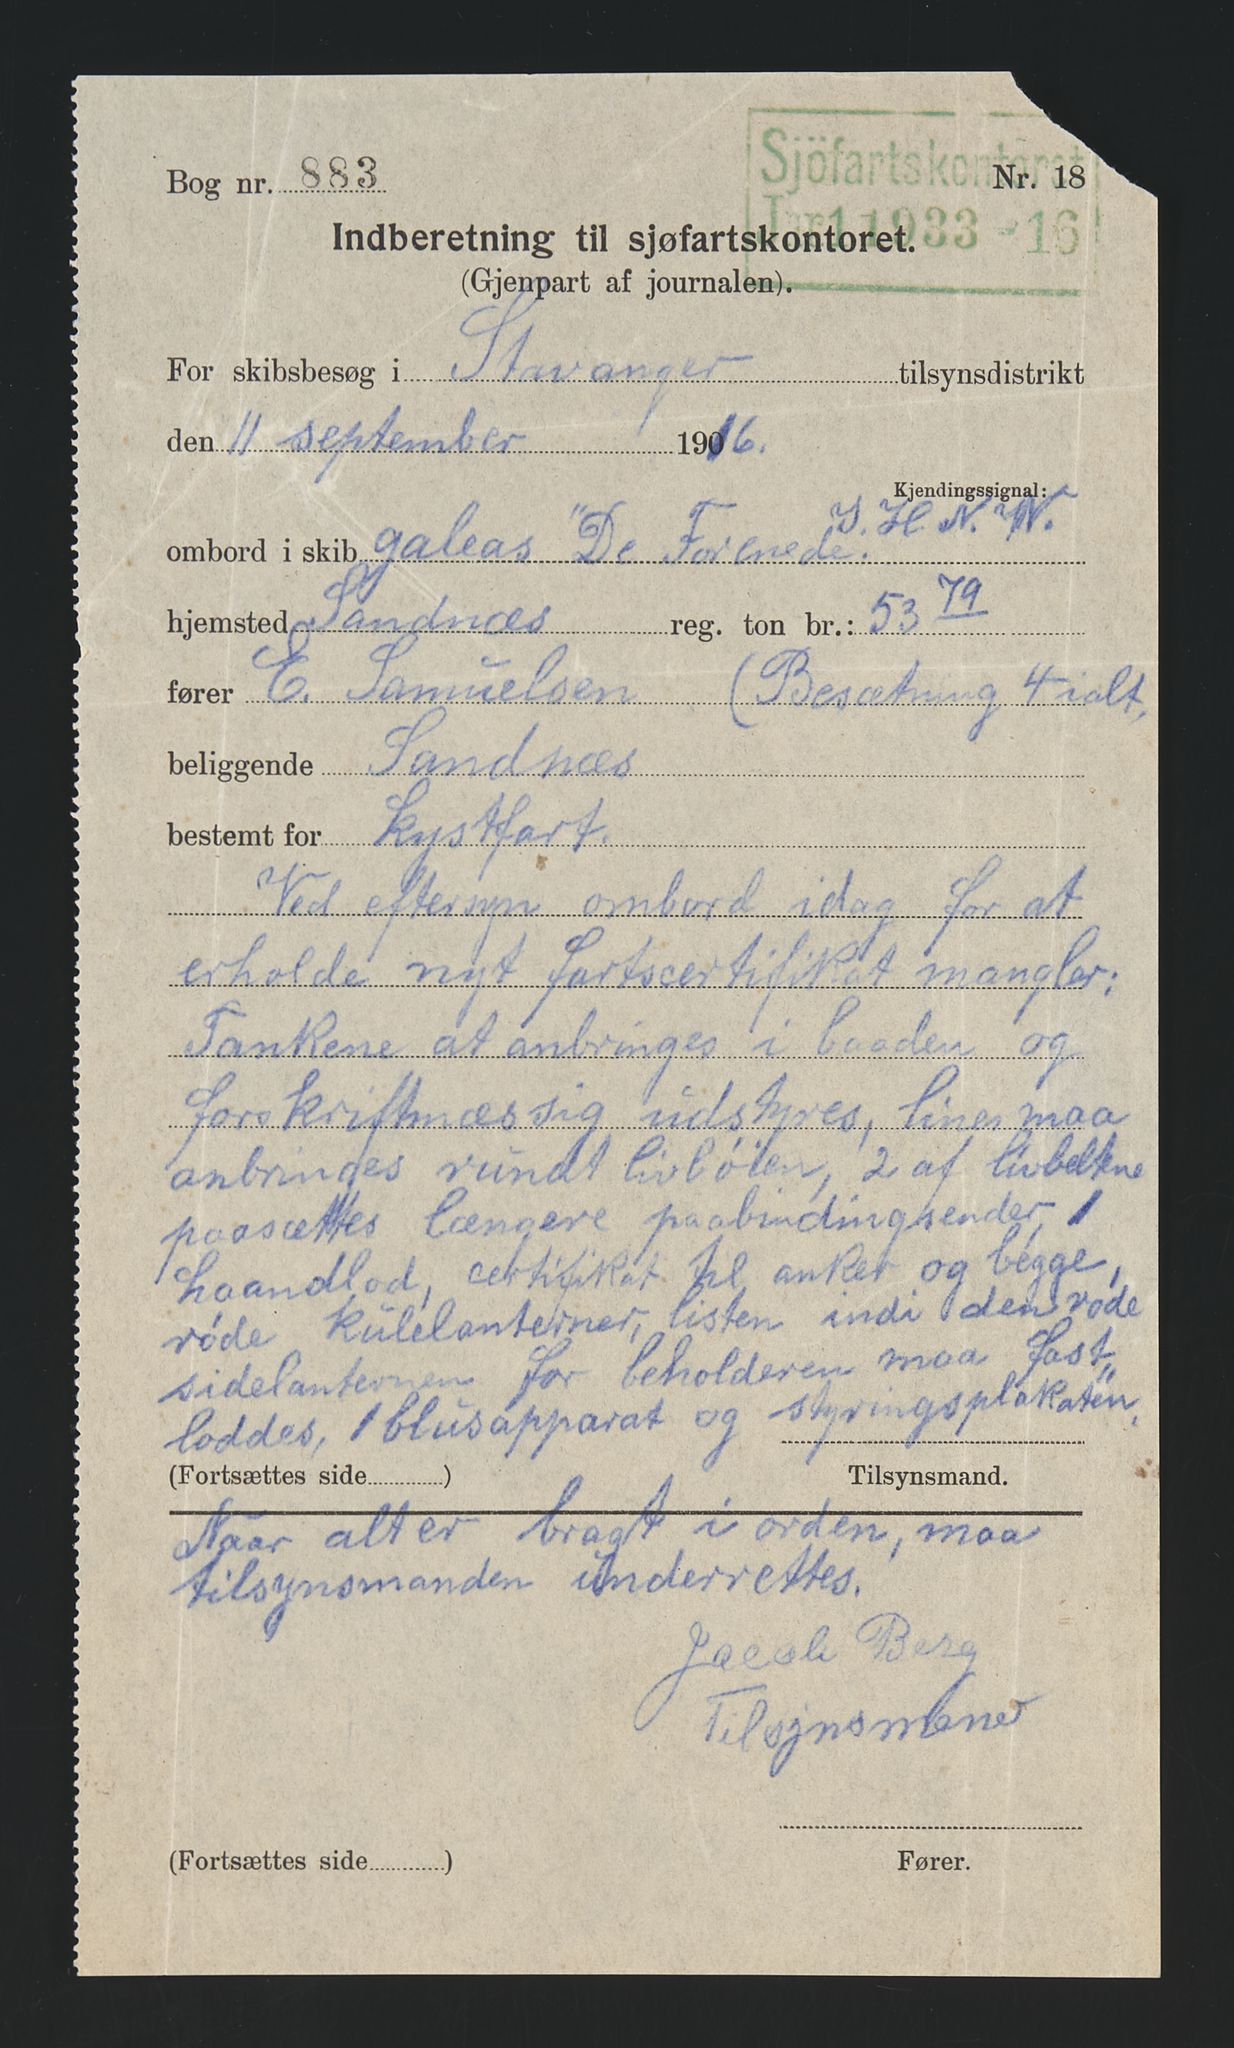 Sjöfartskontoret
Jnr 11933 - 16
Bog nr. 883 Nr. 18
Indberetning til sjøfartskontoret.
(Gjenpart af journalen).
For skibsbesøg i Stavanger tilsynsdistrikt
den 11 september 1916.
Kjendingssignal:
ombord i skib galeas "De Forenede.
hjemsted Sandnæs reg. ton br.: 53 79
fører E. Samuelsen (Besætning 4 ialt,
beliggende Sandnæs
bestemt for Kystfart.
Ved eftersyn ombord idag for at
erholde nyt fartscertifikat mangler:
Tankene at anbringes i baaden og
forskriftmæssig udstyres, liner maa
anbringes rundt livbøien, 2 af livbeltene
paasættes længere paabindingsender, 1
haandlod, certifikat til anker og begge,
røde kulelanterner, listen indi den røde
sidelanternen for beholderen maa fast„
loddes, 1 blusapparat og styringsplakaten.
(Fortsættes side ) Tilsynsmand.
Naar alt er bragt i orden, maa
tilsynsmanden underrettes.
Jacob Berg
Tilsynsmand
(Fortsættes side ) Fører.